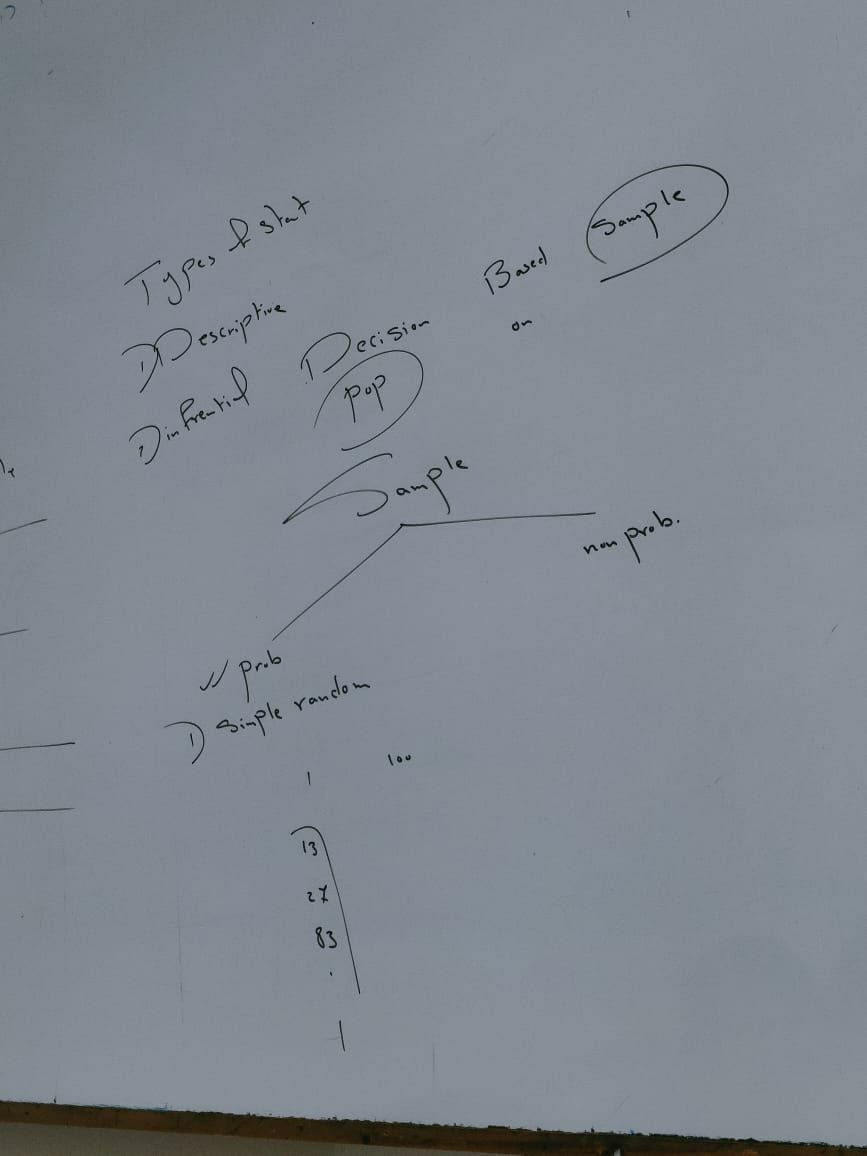 Types of stat
1) Descriptive
1) infrential Decision Based on Sample
pop
Sample
prob
non prob.
1) Simple random
1 100
13
27
83
.